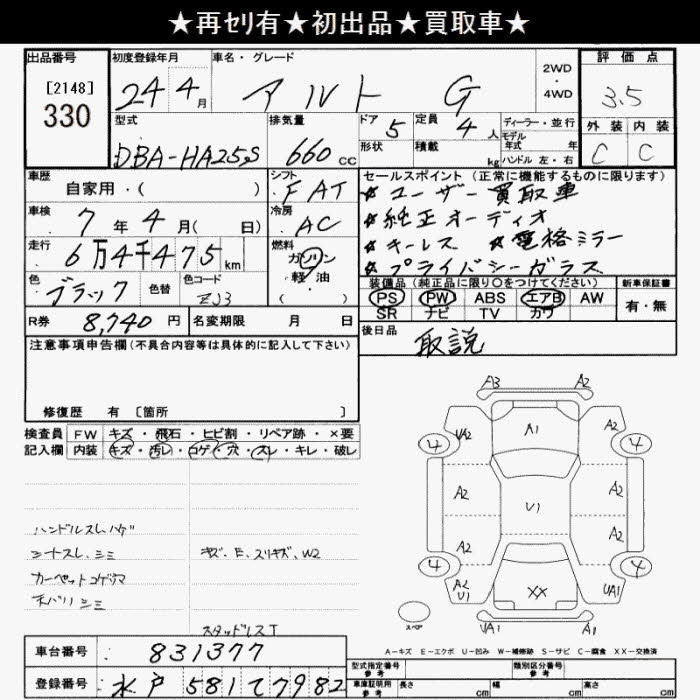 ★再ｾﾘ有★初出品★買取車★
出品番号 初度登録年月 車名・グレード 2WD・4WD 評価点
[2148] 330
24 4月 アルト G 3.5
型式 排気量 ドア 5 定員 4人 ディーラー・並行 外装 内装
モデル年式 年
DBA-HA25S 660cc 形状 積載 kg ハンドル 左・右 C C
車歴 シフト セールスポイント (正常に機能するものに限ります)
自家用・( ) FAT ★ユーザー買取車
車検 7年4月( 日) 冷房 AC ★純正オーディオ
★キーレス ★電格ミラー
走行 6万4千475km 燃料 ガソリン・軽油・( ) ★プライバシーガラス
色 ブラック 色替 色コード ZJ3
装備品 (純正品に限り○をつけてください) 新車保証書
PS PW ABS エアB AW 有・無
SR ナビ TV カワ
R券 8,740円 名変期限 月 日 後日品 取説
注意事項申告欄 (不具合内容等は具体的に記入して下さい)
修復歴 有 [箇所 ]
検査員 FW キズ・飛石・ヒビ割・リペア跡・×要
記入欄 内装 キズ・汚レ・コゲ・穴・スレ・キレ・破レ
ハンドルスレ、ハゲ
シートスレ、シミ キズ、E、スリキズ、W2
カーペットコゲアナ
天バリシミ
スタッドレスT
A3 A2
A1
4 UA2 A2 4
A2 A2
U1
A2 A2
4 4
A2 U1 XX UA1
スペア UA1 A1
A−キズ E−エクボ U−凹み W−補修跡 S−サビ C−腐食 XX−交換済
車台番号 831377 型式指定番号 参考 類別区分番号 参考
登録番号 水戸 581 て 7982 車庫証明用 参考 長さ cm 幅 cm 高さ cm